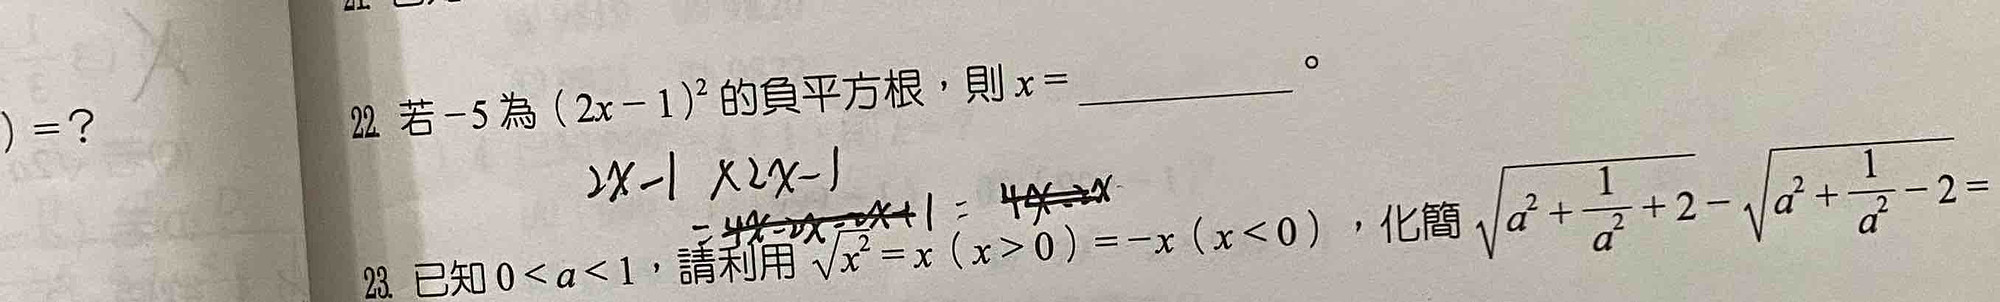 ) = ?
22. 若 -5 為 (2x - 1)² 的負平方根，則 x = ________。
2x-1 x2x-1
23. 已知 0 < a < 1，請利用 √x² = x (x > 0) = -x (x < 0)，化簡 √(a² + 1/a² + 2) - √(a² + 1/a² - 2) =